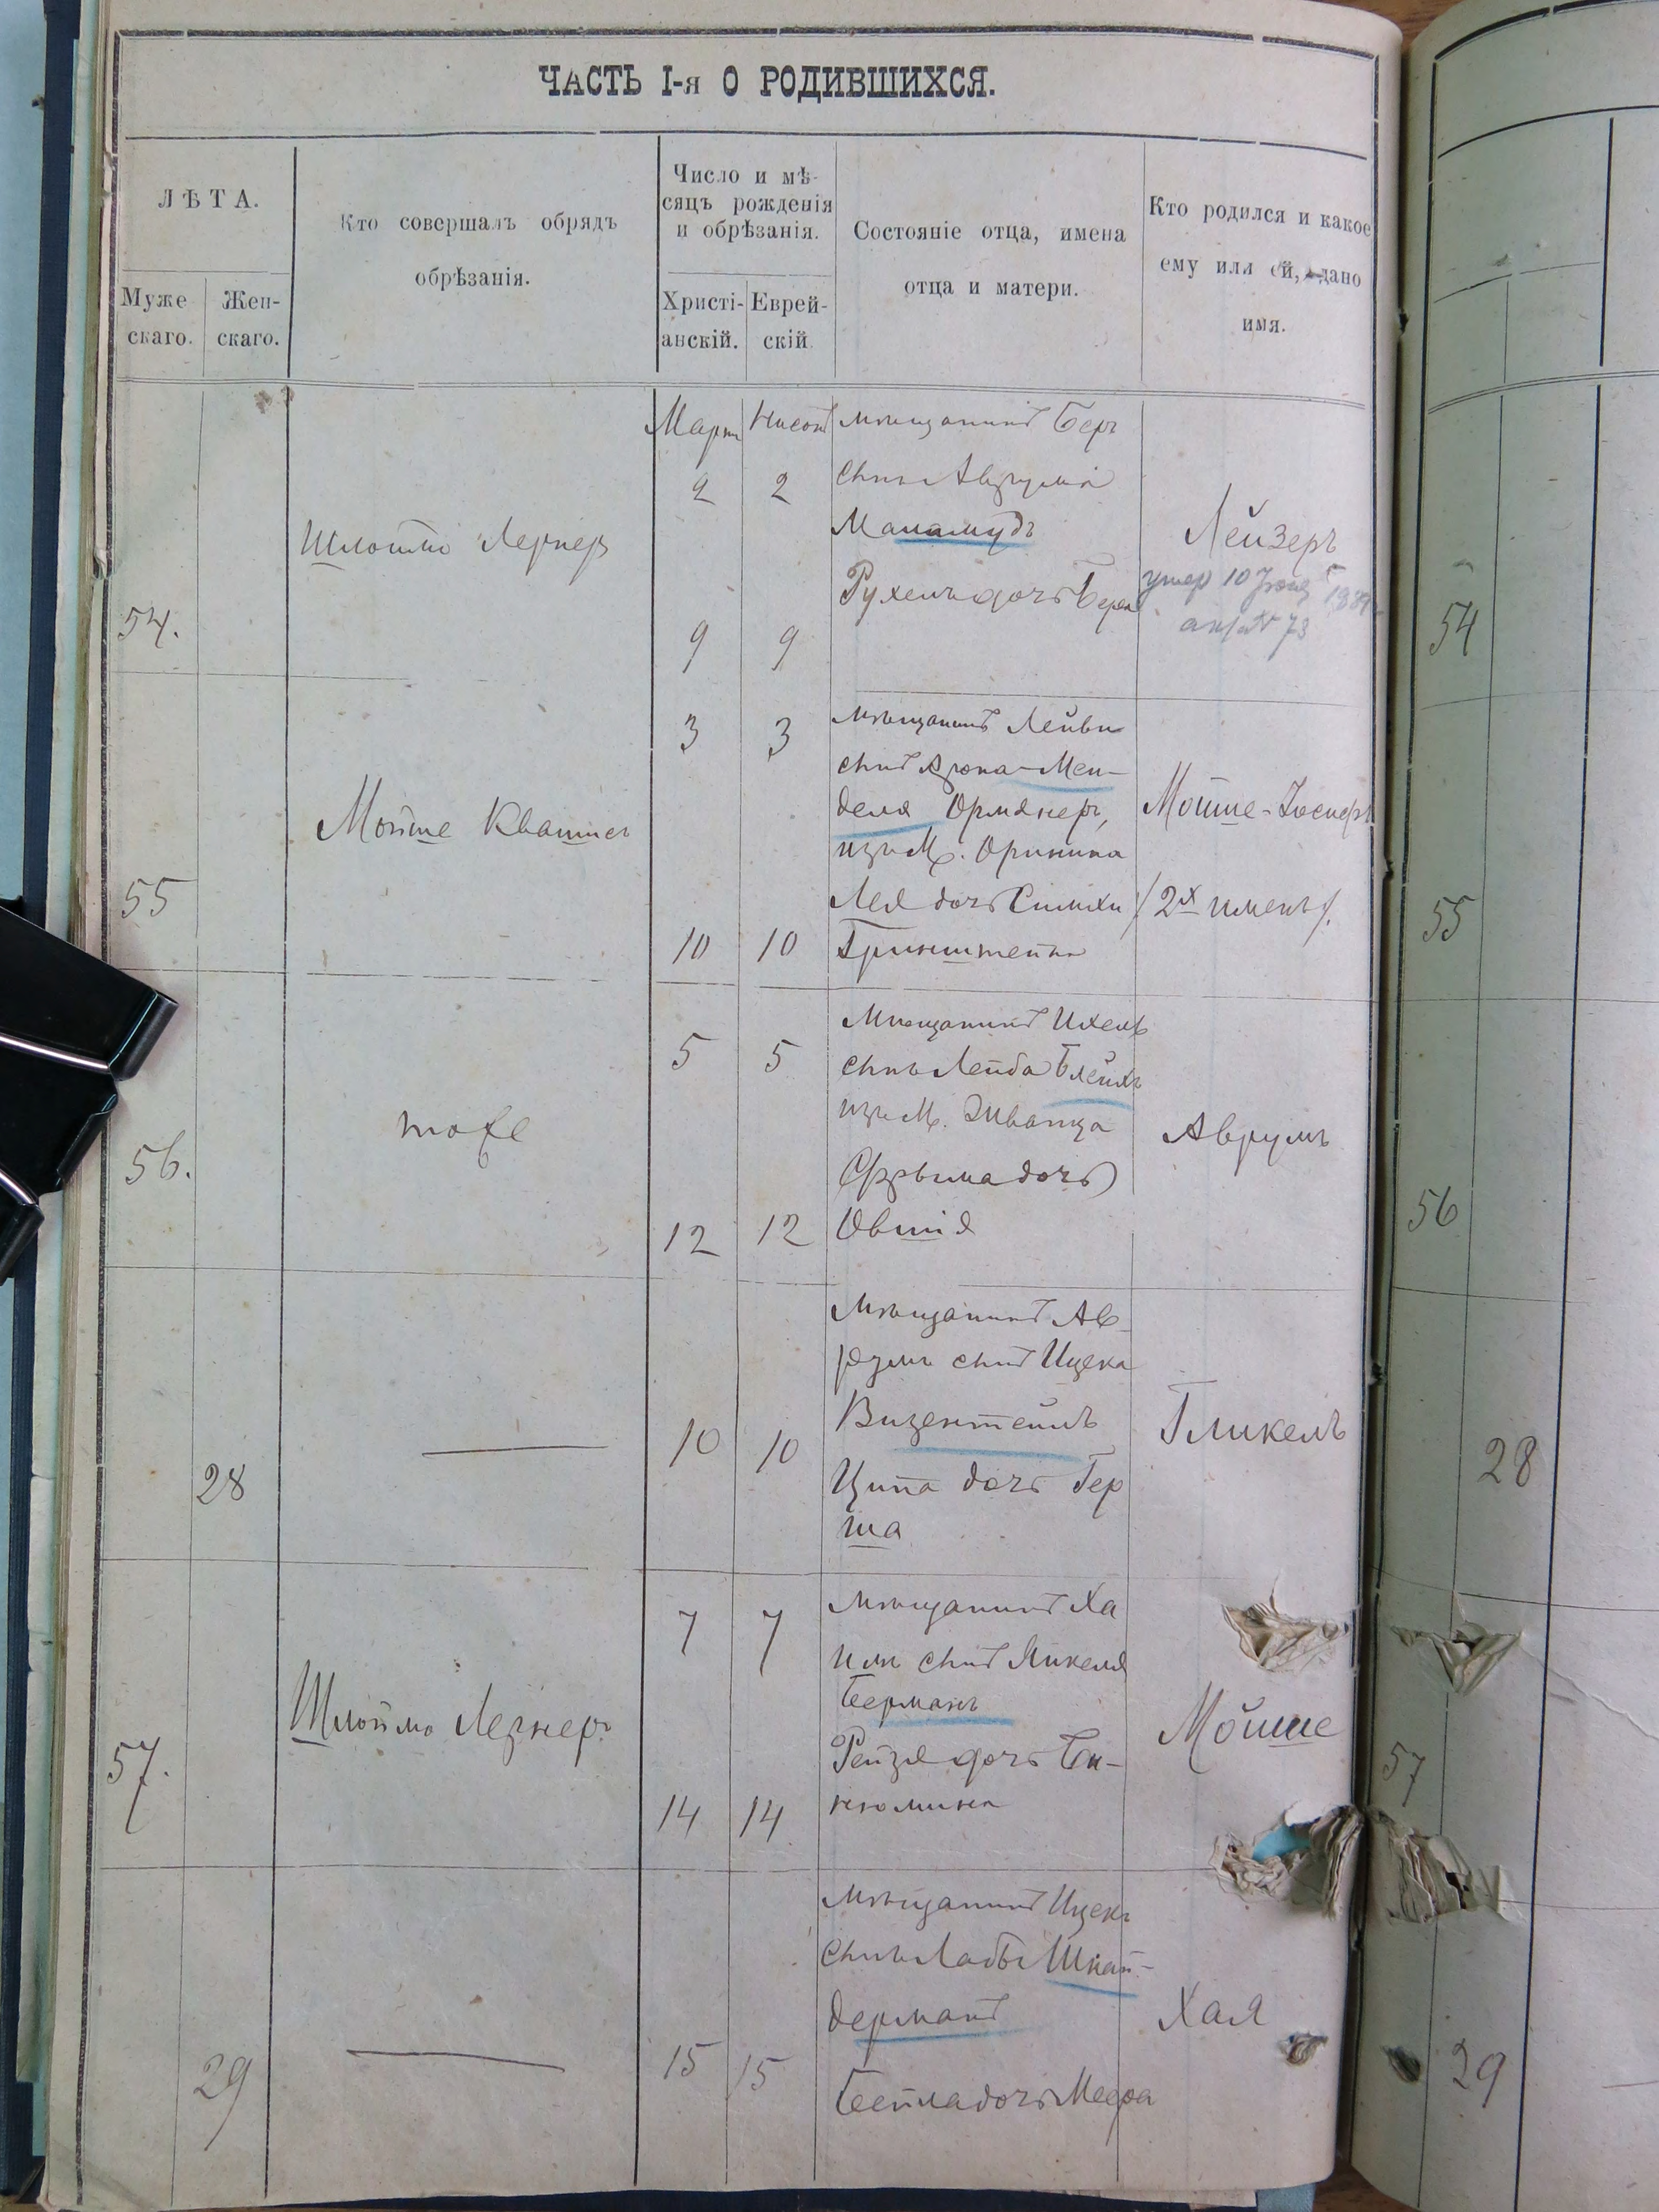 ЧАСТЬ I-я О РОДИВШИХСЯ.
ЛѢТА.
Муже
скаго.
Жен-
скаго.
Кто совершалъ обрядъ
обрѣзанія.
Число и мѣ-
сяцъ рожденія
и обрѣзанія.
Христі-
анскій.
Еврей-
скій.
Состояніе отца, имена
отца и матери.
Кто родился и какое
ему или ей, дано
имя.
54.
Лернеръ
Мартъ
2
9
2
9
мѣщанинъ Беръ
сынъ Аврума
Маламудъ
Рухель дочь Берка
Лейзеръ
умер 10
73
54
55
Мойше Квашис
3
10
3
10
мѣщанинъ Лейви
сынъ Арона-Мен-
деля Орманеръ,
изъ М. Оринина
Лея дочь Симхи
Гринштейна
Мойше-Іосифъ
/2х именъ/.
55
56.
тоже
5
12
5
12
Мѣщанинъ Ихель
сынъ Лейба
изъ М. Жванца
дочь
Овшія
Аврумъ
56
28
10
10
Мѣщанинъ Ав-
румъ сынъ Ицека
Визентейль
Ципа дочь Гер
ша
Гликель
28
57.
Шлойма Лернеръ
7
14
7
14
мѣщанинъ Ха
имъ сынъ Янкеля
Берманъ
Рейзя дочь Би-
нюмина
Мойше
57
29
15
15
Мѣщанинъ Ицекъ
сынъ Шнай-
дерманъ
Бейла дочь Меера
Хая
29